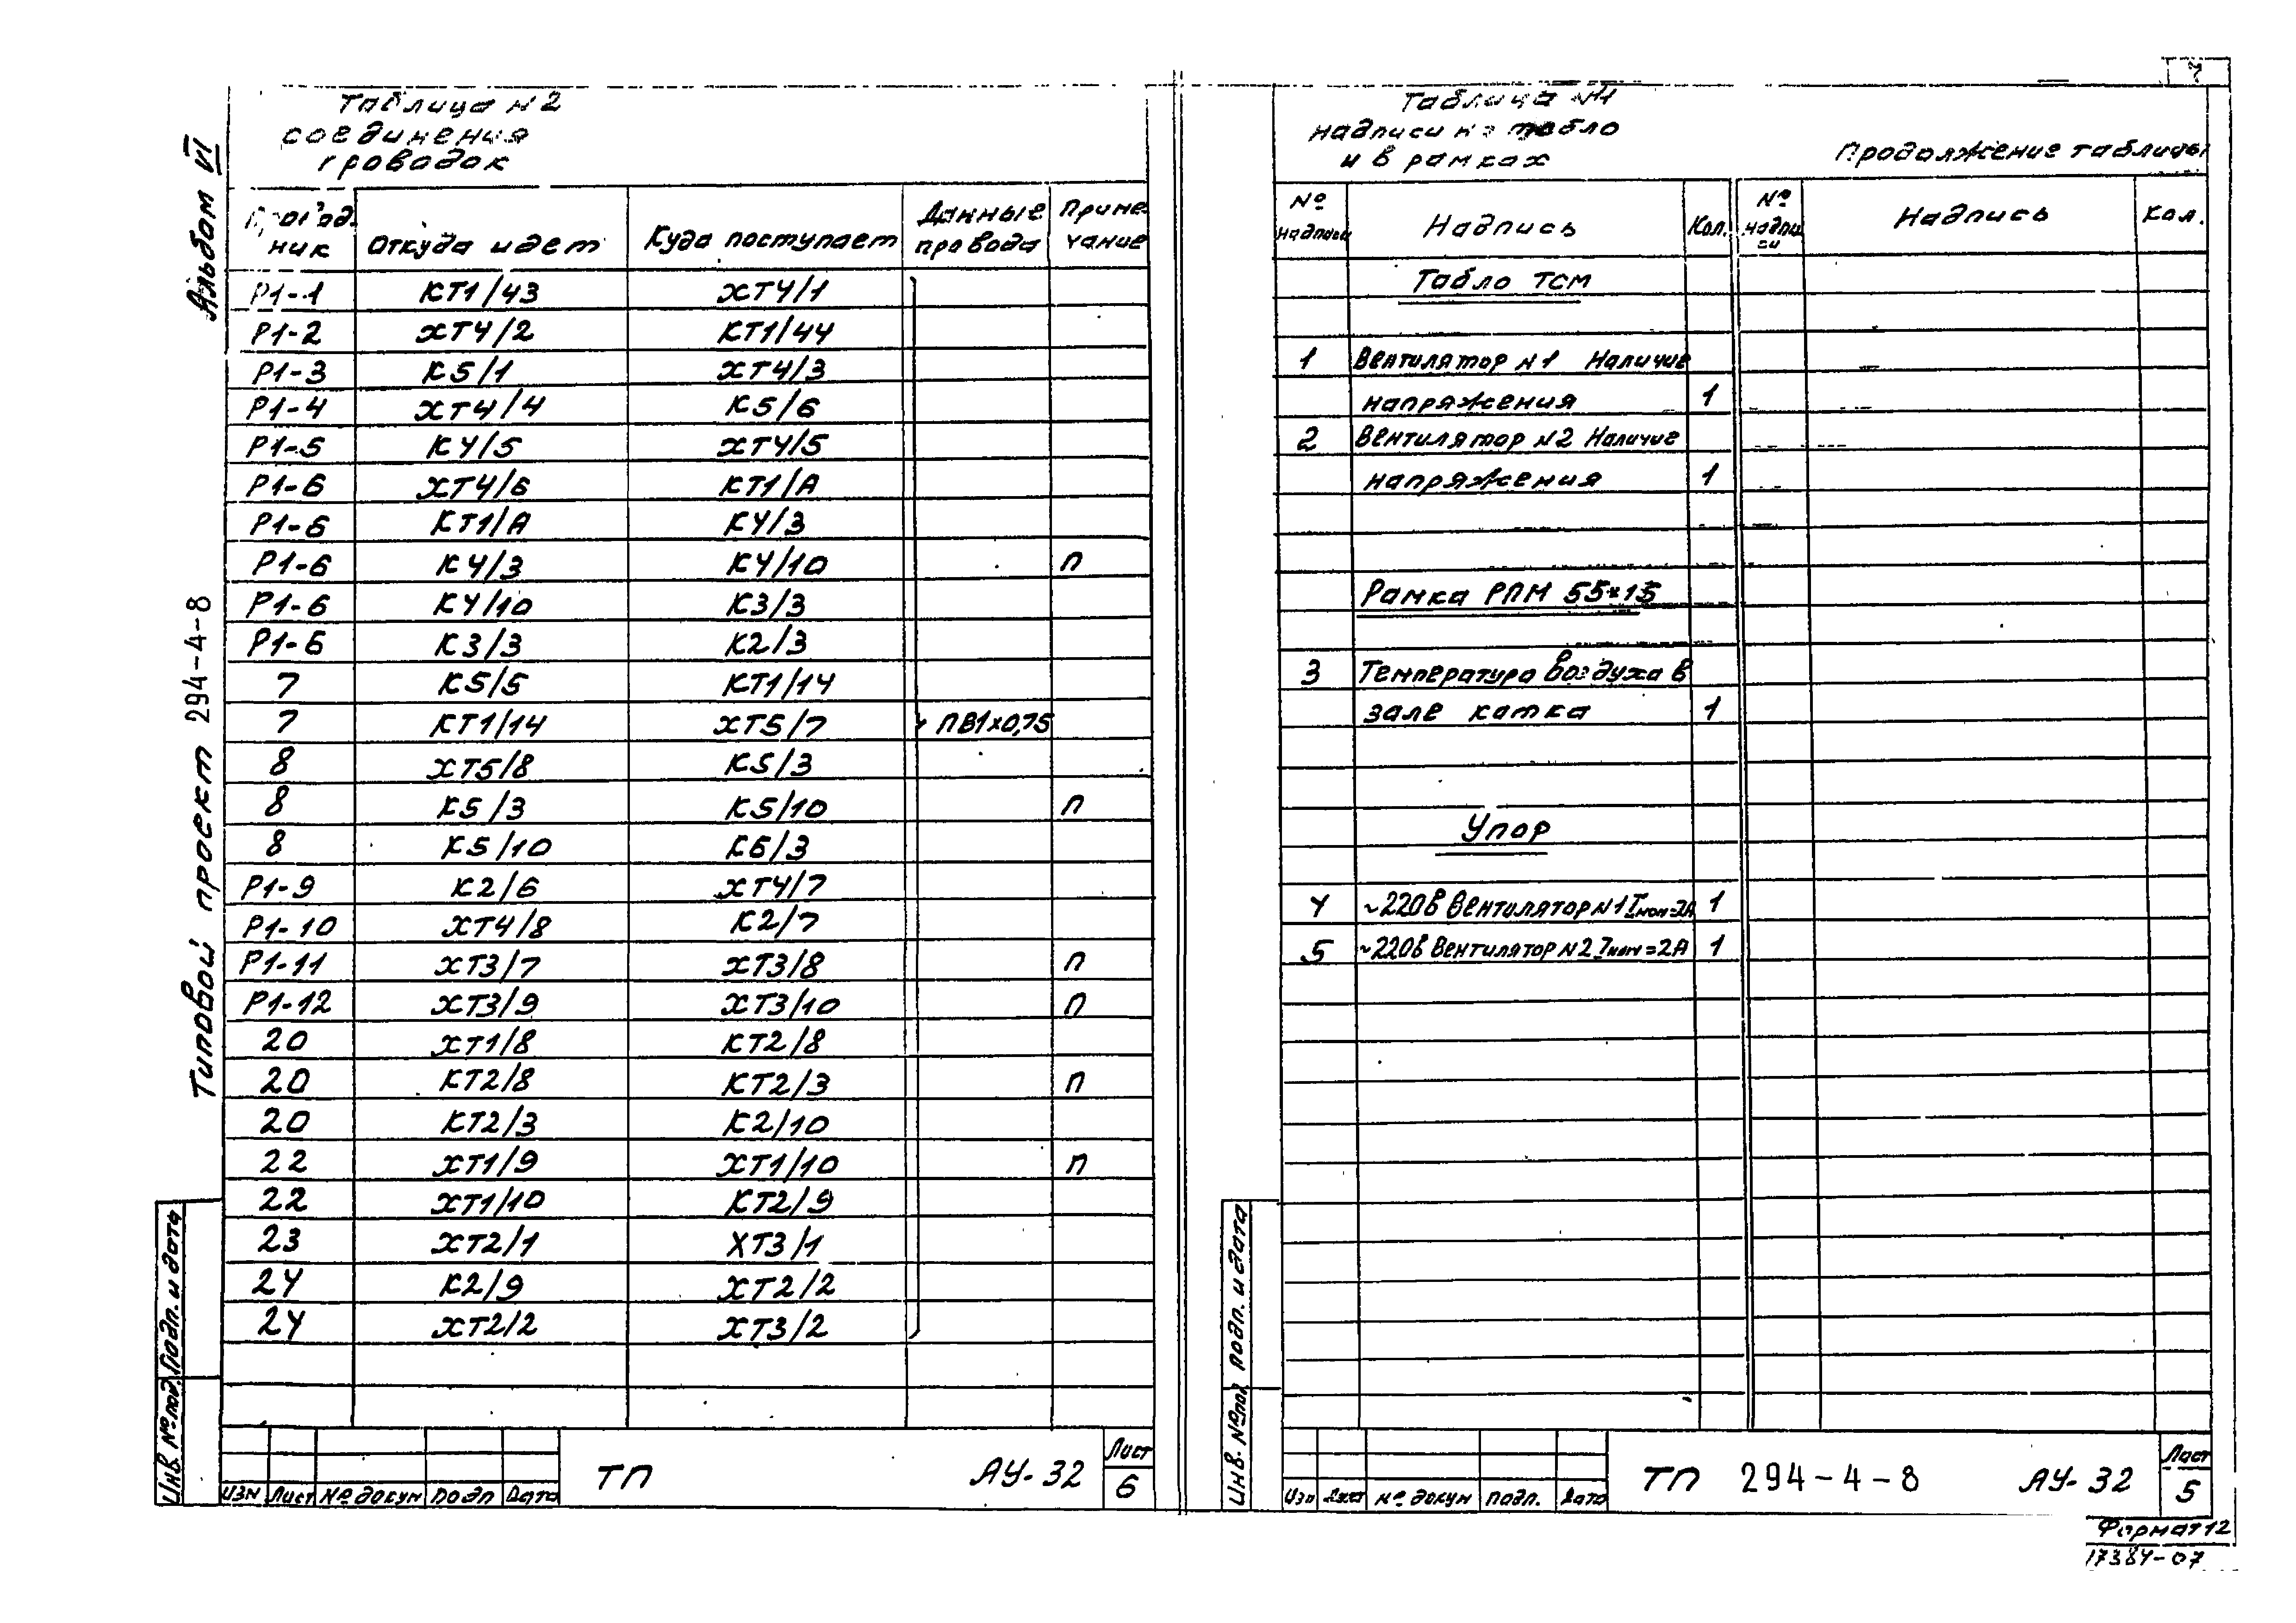 Альбом VI
Типовой проект 294-4-8
Таблица №2
соединения
проводок
Проводник | Откуда идет | Куда поступает | Данные провода | Примечание
Р1-1 | КТ1/43 | ХТ4/1
Р1-2 | ХТ4/2 | КТ1/44
Р1-3 | К5/1 | ХТ4/3
Р1-4 | ХТ4/4 | К5/6
Р1-5 | К4/5 | ХТ4/5
Р1-6 | ХТ4/6 | КТ1/А
Р1-6 | КТ1/А | К4/3
Р1-6 | К4/3 | К4/10 | П
Р1-6 | К4/10 | К3/3
Р1-6 | К3/3 | К2/3
7 | К5/5 | КТ1/14
7 | КТ1/14 | ХТ5/7 | ПВ1х0,75
8 | ХТ5/8 | К5/3
8 | К5/3 | К5/10 | П
8 | К5/10 | К6/3
Р1-9 | К2/6 | ХТ4/7
Р1-10 | ХТ4/8 | К2/7
Р1-11 | ХТ3/7 | ХТ3/8 | П
Р1-12 | ХТ3/9 | ХТ3/10 | П
20 | ХТ1/8 | КТ2/8
20 | КТ2/8 | КТ2/3 | П
20 | КТ2/3 | К2/10
22 | ХТ1/9 | ХТ1/10 | П
22 | ХТ1/10 | КТ2/9
23 | ХТ2/1 | ХТ3/1
24 | К2/9 | ХТ2/2
24 | ХТ2/2 | ХТ3/2
Инв. № под. Подп. и дата
Изм Лист № докум Подп Дата
ТП АУ-32 Лист 6
7
Таблица №1
надписи на табло
и в рамках
Продолжение таблицы
№ надписи | Надпись | Кол. | № надписи | Надпись | Кол.
Табло ТСМ
1 | Вентилятор №1 Наличие
напряжения | 1
2 | Вентилятор №2 Наличие
напряжения | 1
Рамка РПМ 55х15
3 | Температура воздуха в
зале катка | 1
Упор
4 | ~220в Вентилятор №1 Iном=2А | 1
5 | ~220в Вентилятор №2 Iном=2А | 1
Инв. № под подп. и дата
Изм Лист № докум подп. Дата
ТП 294-4-8 АУ-32 Лист 5
Формат 12
17384-07